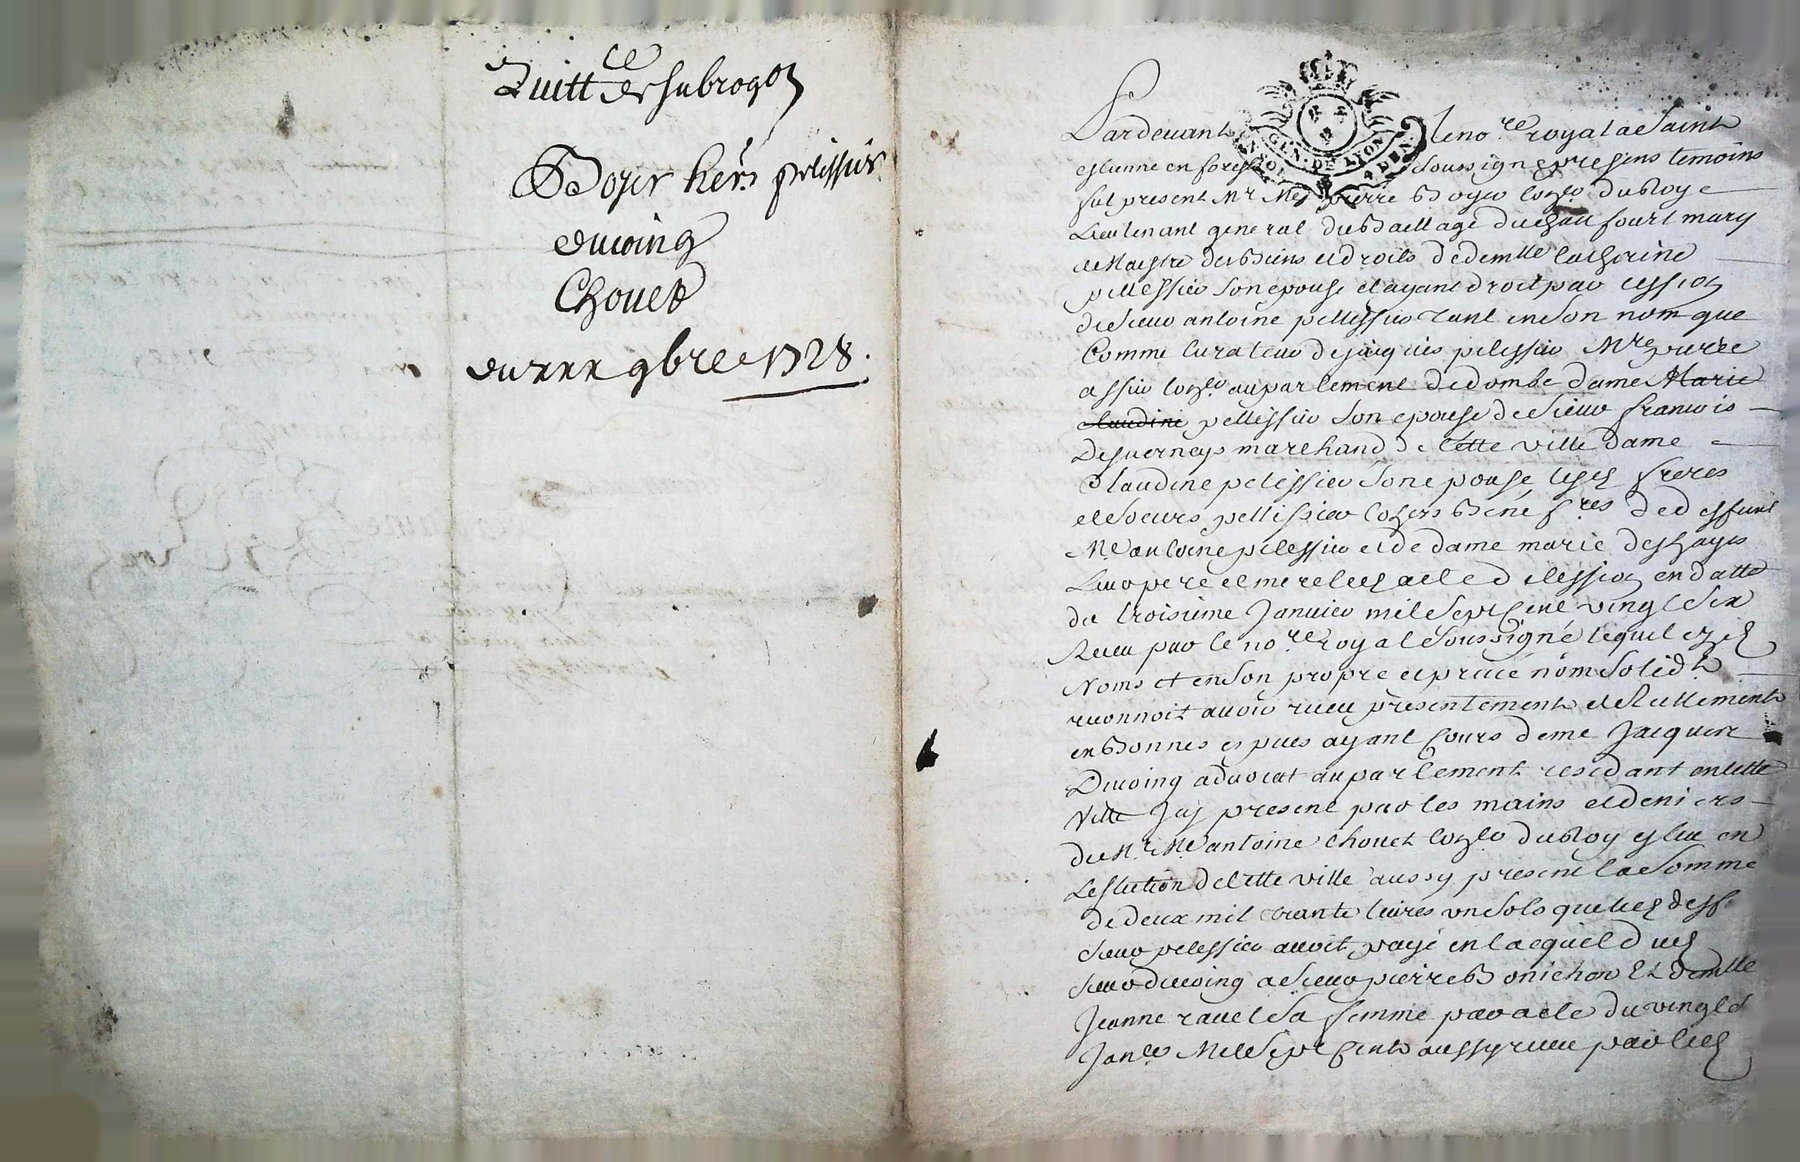 Quitt.ce et subrogon
Boyer hers pelissier
ducoing
Chouet
du xxx 9bre 1728.
GEN. DE LYON
Pardevant le no.re royal a Saint
estienne en forest soussigné presens temoins
fut present Mr Me pierre Boyer Con.er du Roy
Lieutenant general du Bailliage du Chauffourt mary
et Maistre des Biens et droits de demlle Catherine
pellessier son epouse et ayant droit par cession
de sieur antoine pellissier tant en son nom que
Comme Curateur de jacques pelissier Mre pierre
assier Con.er au parlement de dombe dame Marie
Claudine pellissier son epouse de sieur francois
Desverneys marchand de Cette ville dame
Claudine pelissier son epouse lesd freres
et soeurs pellissier Cohers Bené f.res de deffunt
Me antoine pelessier et de dame marie deshayes
Leur pere et mere led acte de Cession en datte
du troisieme Janvier mil Sept Cent vingt six
Receu par le no.re royal soussigné lequel ezd
Noms et en son propre et privé nom solid.t
reconnoit avoir receu presentement et reellement
en Bonnes especes ayant Cours de me Jacques
Ducoing advocat au parlement residant en cette
Ville Icy present par les mains et deniers
de Mr Me antoine Chouet Con.er du Roy eslu en
Leslection de Cette ville aussy present la somme
de deux mil trante livres un sols que led deff.
sieur pelessier avoit payé en lacquit dud
sieur ducoing a sieur pierre Bonichon Et demlle
Jeanne ravel sa femme par acte du vingt
Jan.er Mil Sept Cents aussy receu par led